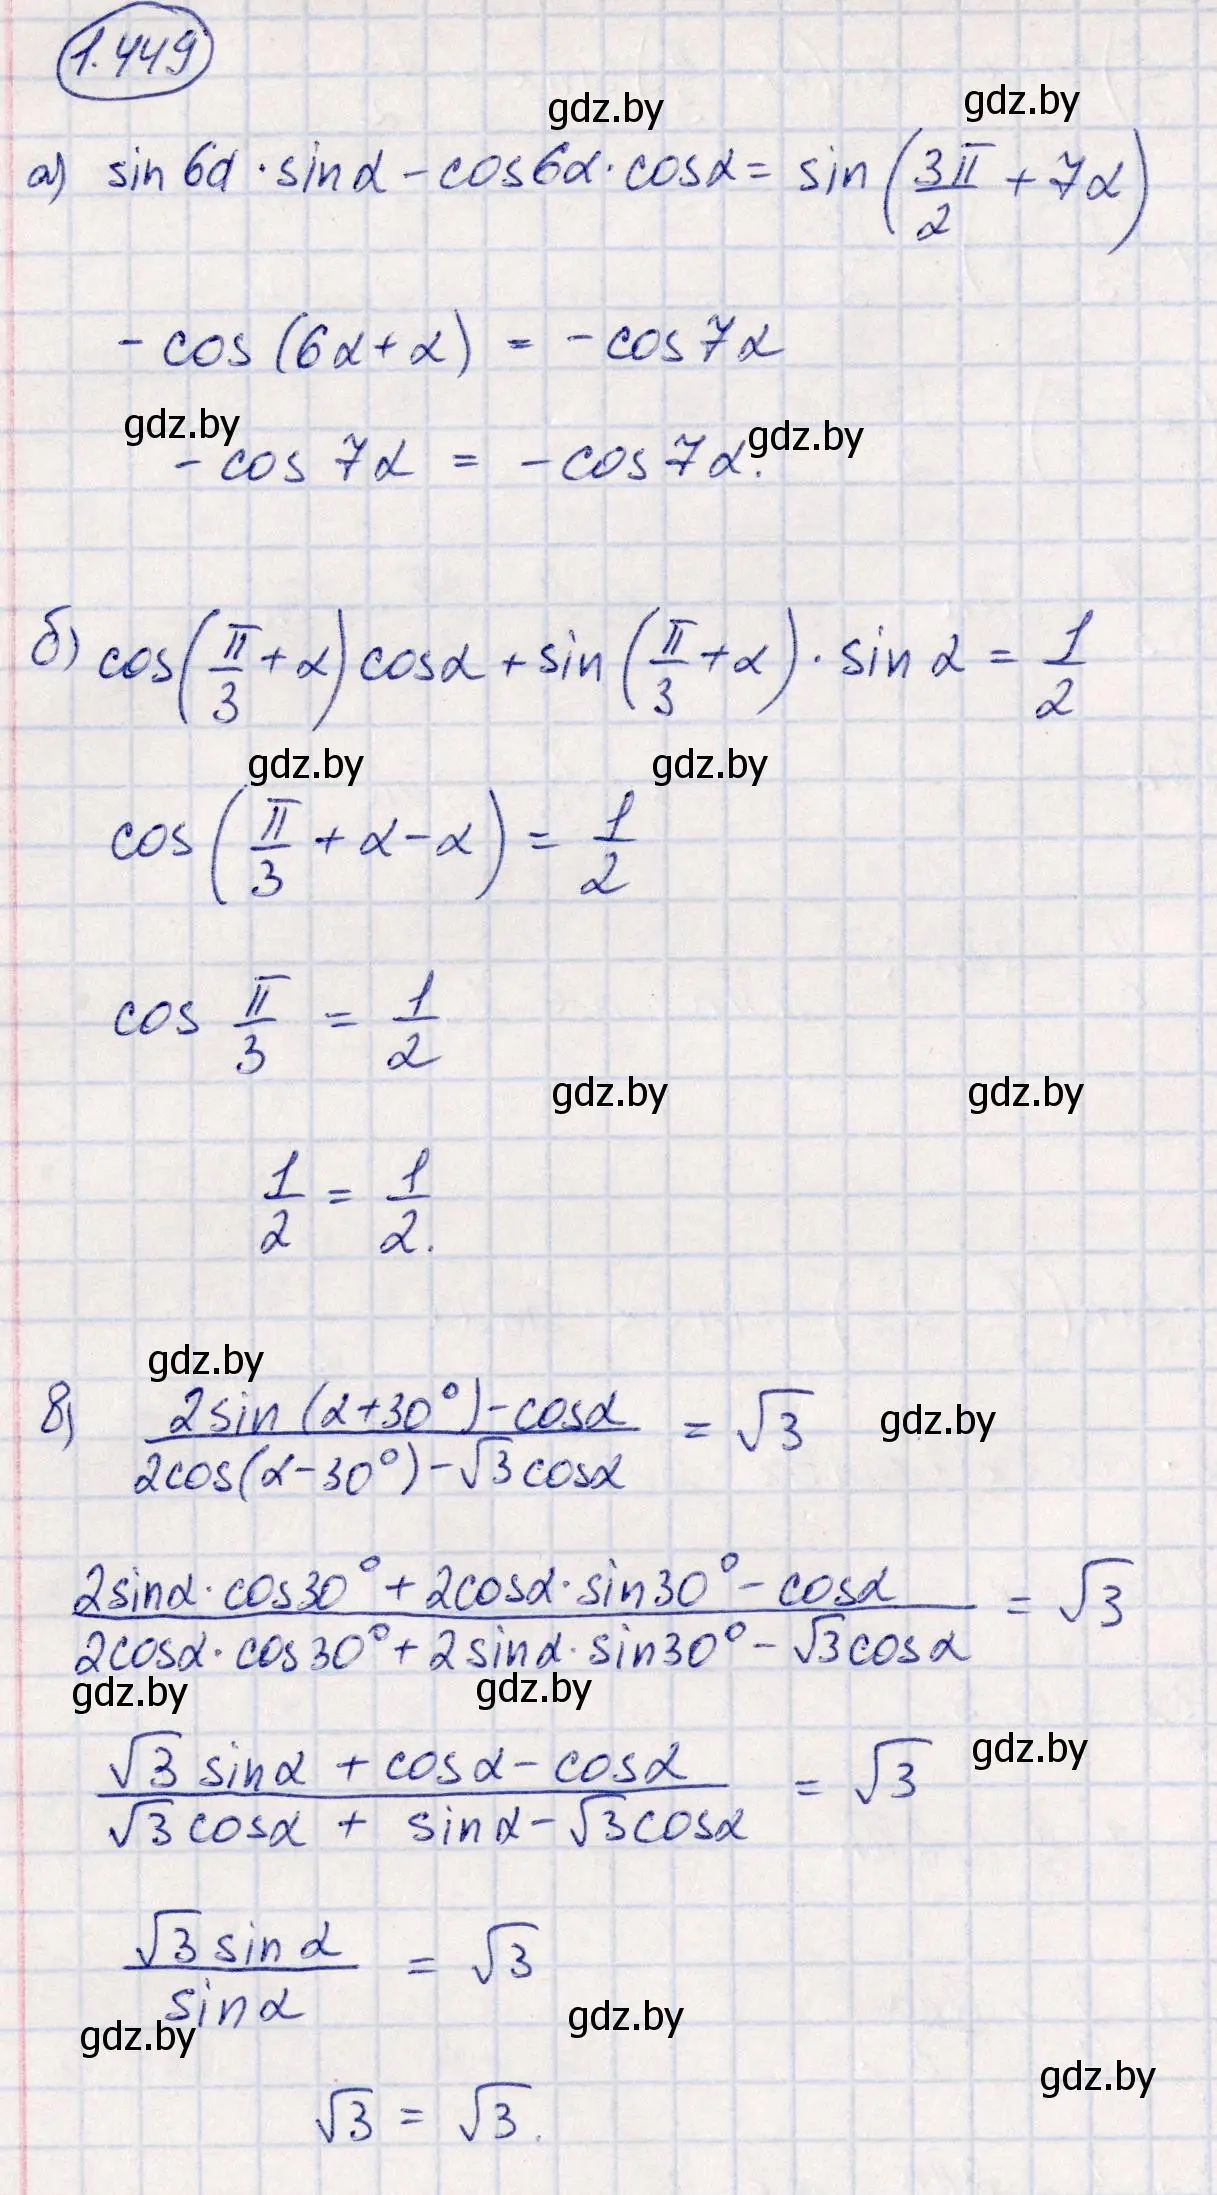 1.449
gdz.by gdz.by
а) sin 6α · sin α - cos 6α · cos α = sin (3π/2 + 7α)
- cos (6α + α) = - cos 7α
gdz.by gdz.by
- cos 7α = - cos 7α.
б) cos (π/3 + α) cos α + sin (π/3 + α) · sin α = 1/2
gdz.by gdz.by
cos (π/3 + α - α) = 1/2
cos π/3 = 1/2
gdz.by gdz.by
1/2 = 1/2.
gdz.by
в) (2 sin (α + 30°) - cos α)/(2 cos (α - 30°) - √3 cos α) = √3 gdz.by
(2 sin α · cos 30° + 2 cos α · sin 30° - cos α)/(2 cos α · cos 30° + 2 sin α · sin 30° - √3 cos α) = √3
gdz.by gdz.by
(√3 sin α + cos α - cos α)/(√3 cos α + sin α - √3 cos α) = √3 gdz.by
(√3 sin α)/(sin α) = √3
gdz.by gdz.by
gdz.by
√3 = √3.